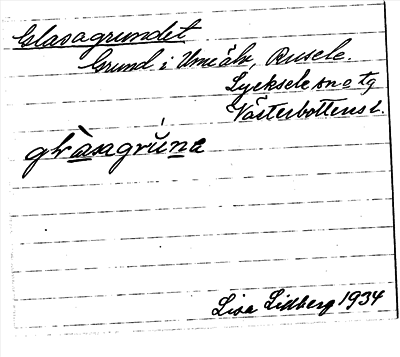 Glasagrundet
Grund i Ume älv, Rusele.
Lycksele sn o tg
Västerbottens l.
glàsagrúna
Lisa Lidberg 1934